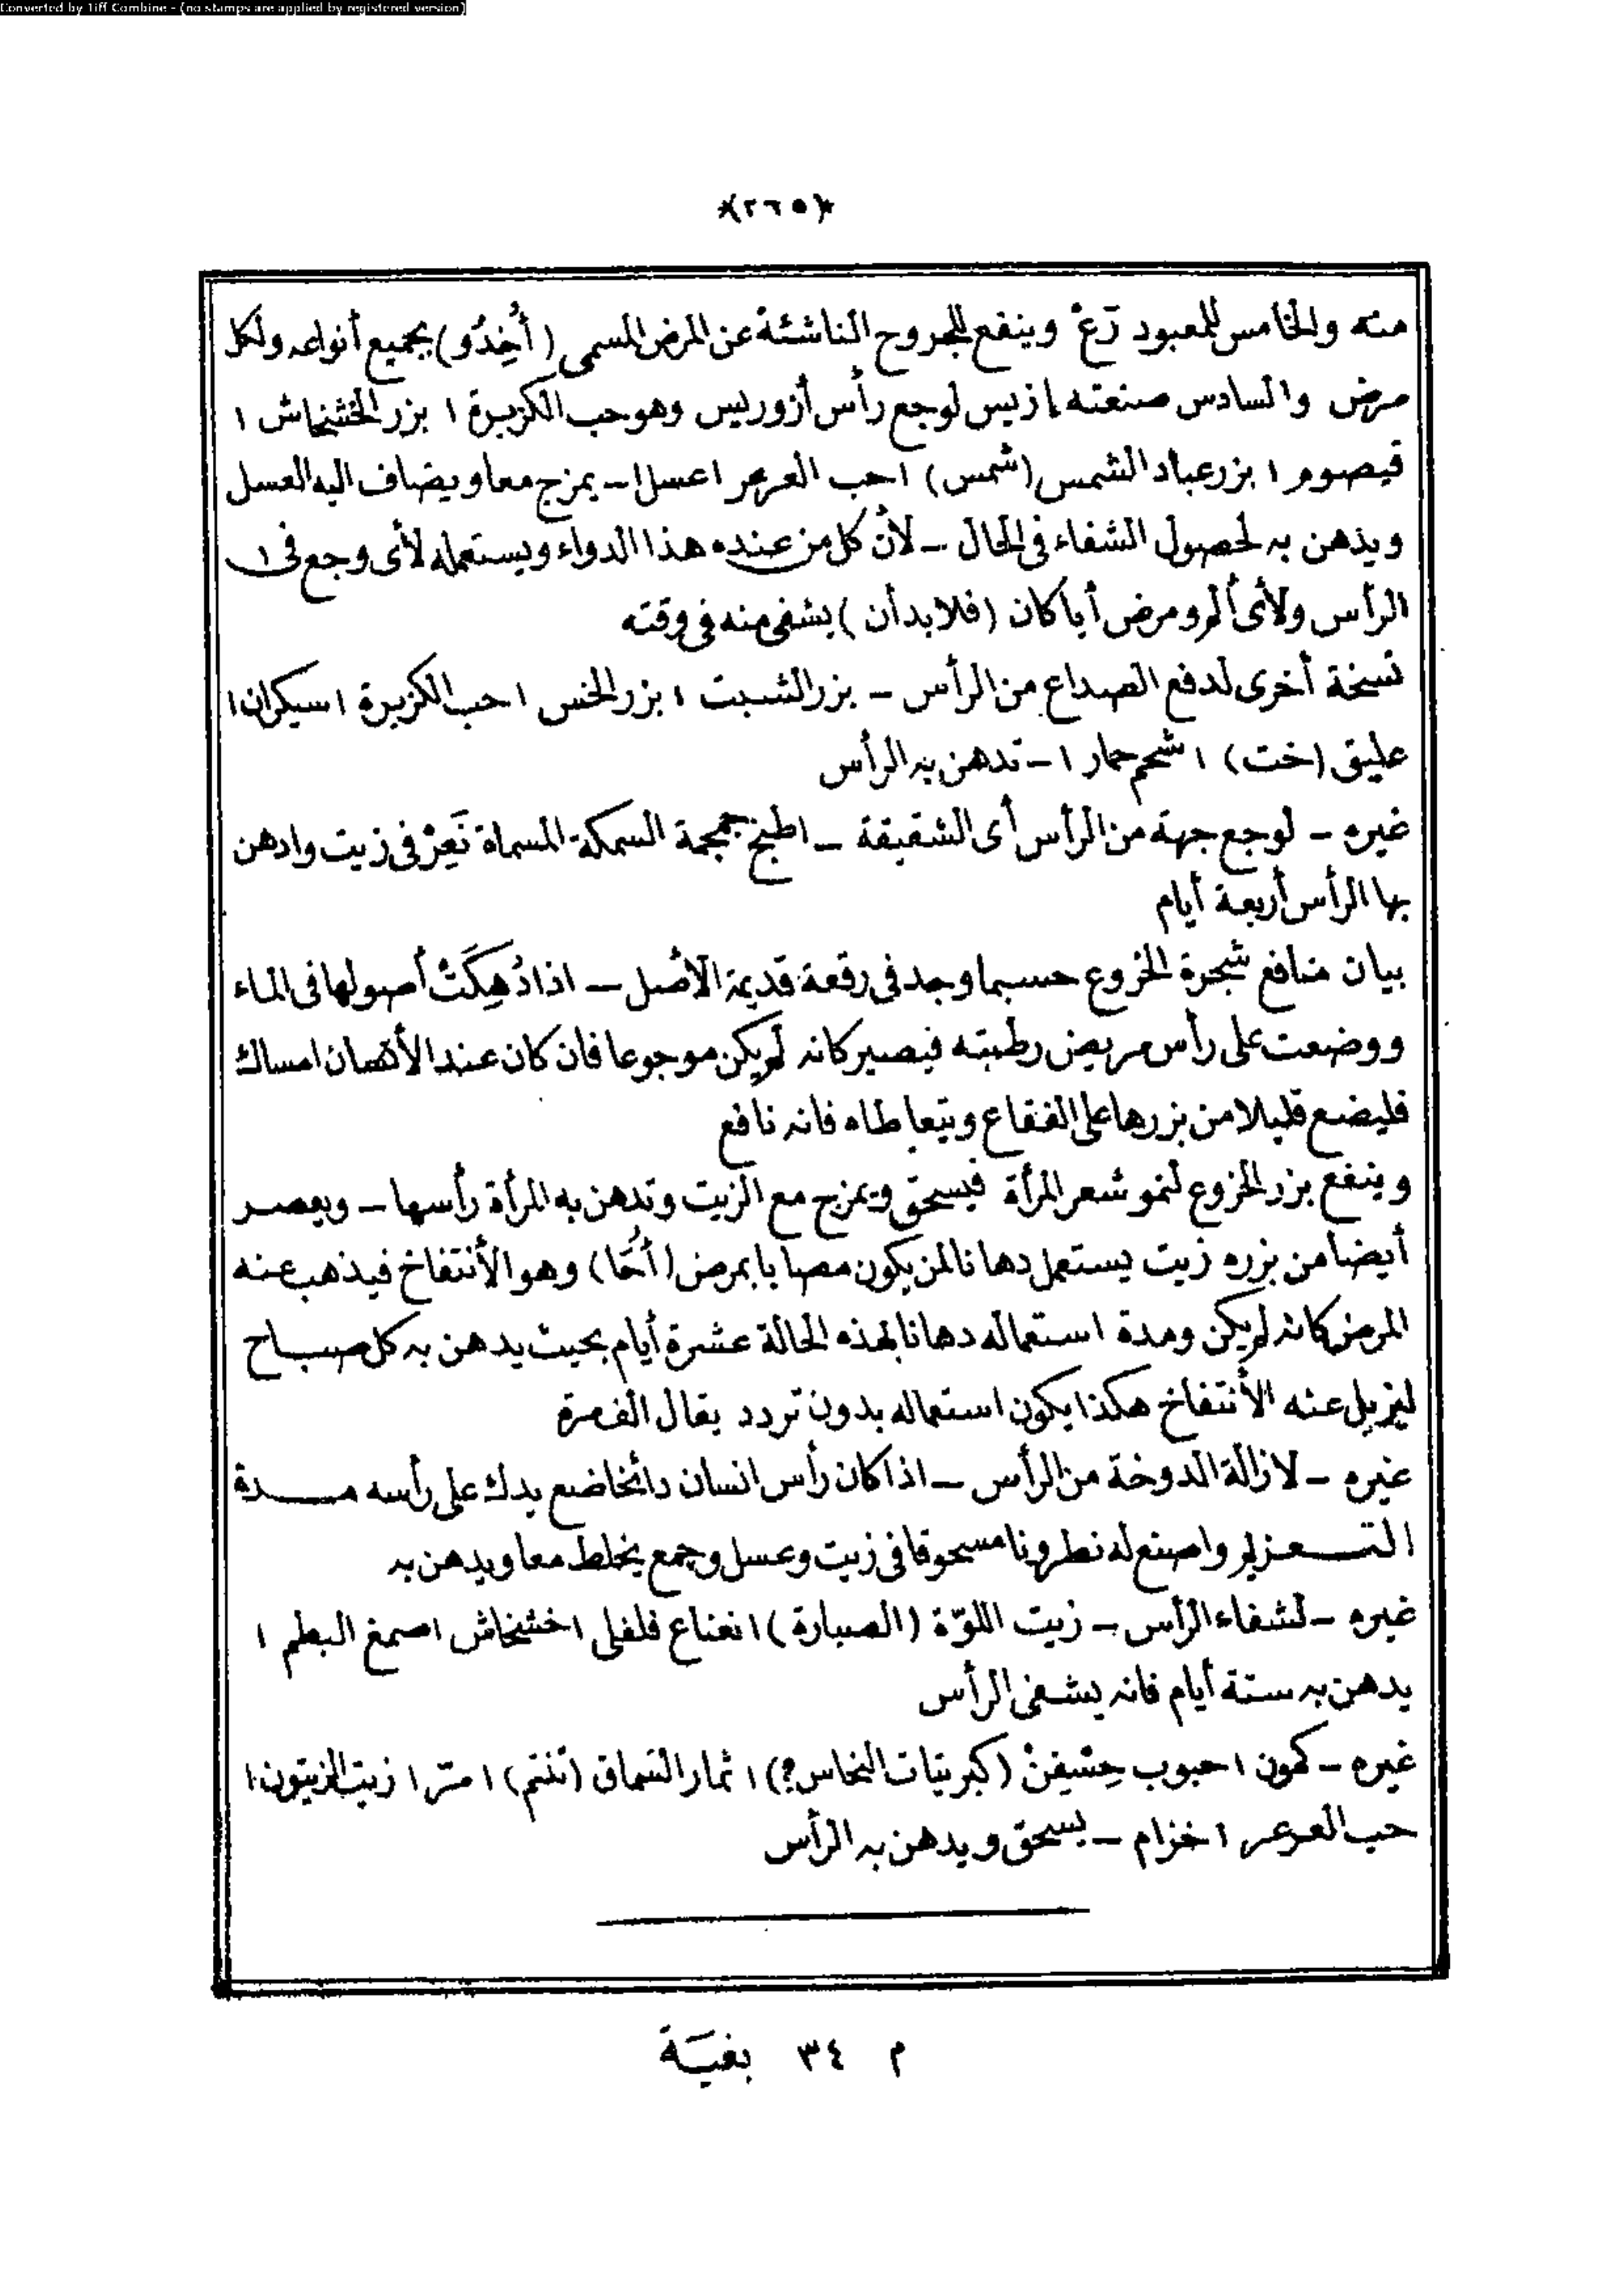 Converted by Tiff Combine - (no stamps are applied by registered version)
*(٢٦٥)*
منه والخامس للمعبود رَعْ وينفع للجروح الناشئة عن المرض المسمى (أُخِدُو) بجميع أنواعه ولكل
مرض والسادس صنعته إزيس لوجع رأس أزوريس وهو حب الكزبرة ١ بزر الخشخاش ١
قيصوم ١ بزر عباد الشمس (شمس) ١ حب العرعر ١ عسل ١ – يمزج معا ويضاف اليه العسل
ويدهن به لحصول الشفاء فى الحال – لأن كل من عنده هذا الدواء ويستعمله لأى وجع فى
الرأس ولأى ألم ومرض أيا كان (فلا بد أن) يشفى منه فى وقته
نسخة أخرى لدفع الصداع من الرأس – بزر الشبت ١ بزر الخس ١ حب الكزبرة ١ سيكران ١
عليق (خت) ١ شحم حمار ١ – تدهن به الرأس
غيره – لوجع جهة من الرأس أى الشقيقة – اطبخ جمجمة السمكة المسماة نَعِرْ فى زيت وادهن
بها الرأس أربعة أيام
بيان منافع شجرة الخروع حسبما وجد فى رقعة قديمة الأصل – اذا دُهِكَتْ أصولها فى الماء
ووضعت على رأس مريض رطبته فيصير كانه لم يكن موجوعا فان كان عند الأنسان امساك
فليضع قليلا من بزرها على الفقاع ويتعاطاه فانه نافع
وينفع بزر الخروع لنمو شعر المرأة فيسحق ويمزج مع الزيت وتدهن به المرأة رأسها – ويعصر
أيضا من بزره زيت يستعمل دهانا لمن يكون مصابا بمرض (أُحَا) وهو الأنتفاخ فيذهب عنه
المرض كانه لم يكن ومدة استعماله دهانا لهذه الحالة عشرة أيام بحيث يدهن به كل صباح
ليزيل عنه الأنتفاخ هكذا يكون استعماله بدون تردد يقال الف مرة
غيره – لازالة الدوخة من الرأس – اذا كان رأس انسان دائخا ضع يدك على رأسه مدة
التعزيم واصنع له نطرونا مسحوقا فى زيت وعسل وجمع يخلط معا ويدهن به
غيره – لشفاء الرأس – زيت اللوّة (الصبارة) ١ نعناع فلفلى ١ خشخاش ١ صمغ البطم ١
يدهن به ستة أيام فانه يشفى الرأس
غيره – كمون ١ حبوب حِشْفِنْ (كبريتات النحاس؟) ١ ثمار السماق (تنتم) ١ مرّ ١ زيت الزيتون ١
حب العرعر ١ خزام – يسحق ويدهن به الرأس
م ٣٤ بغية